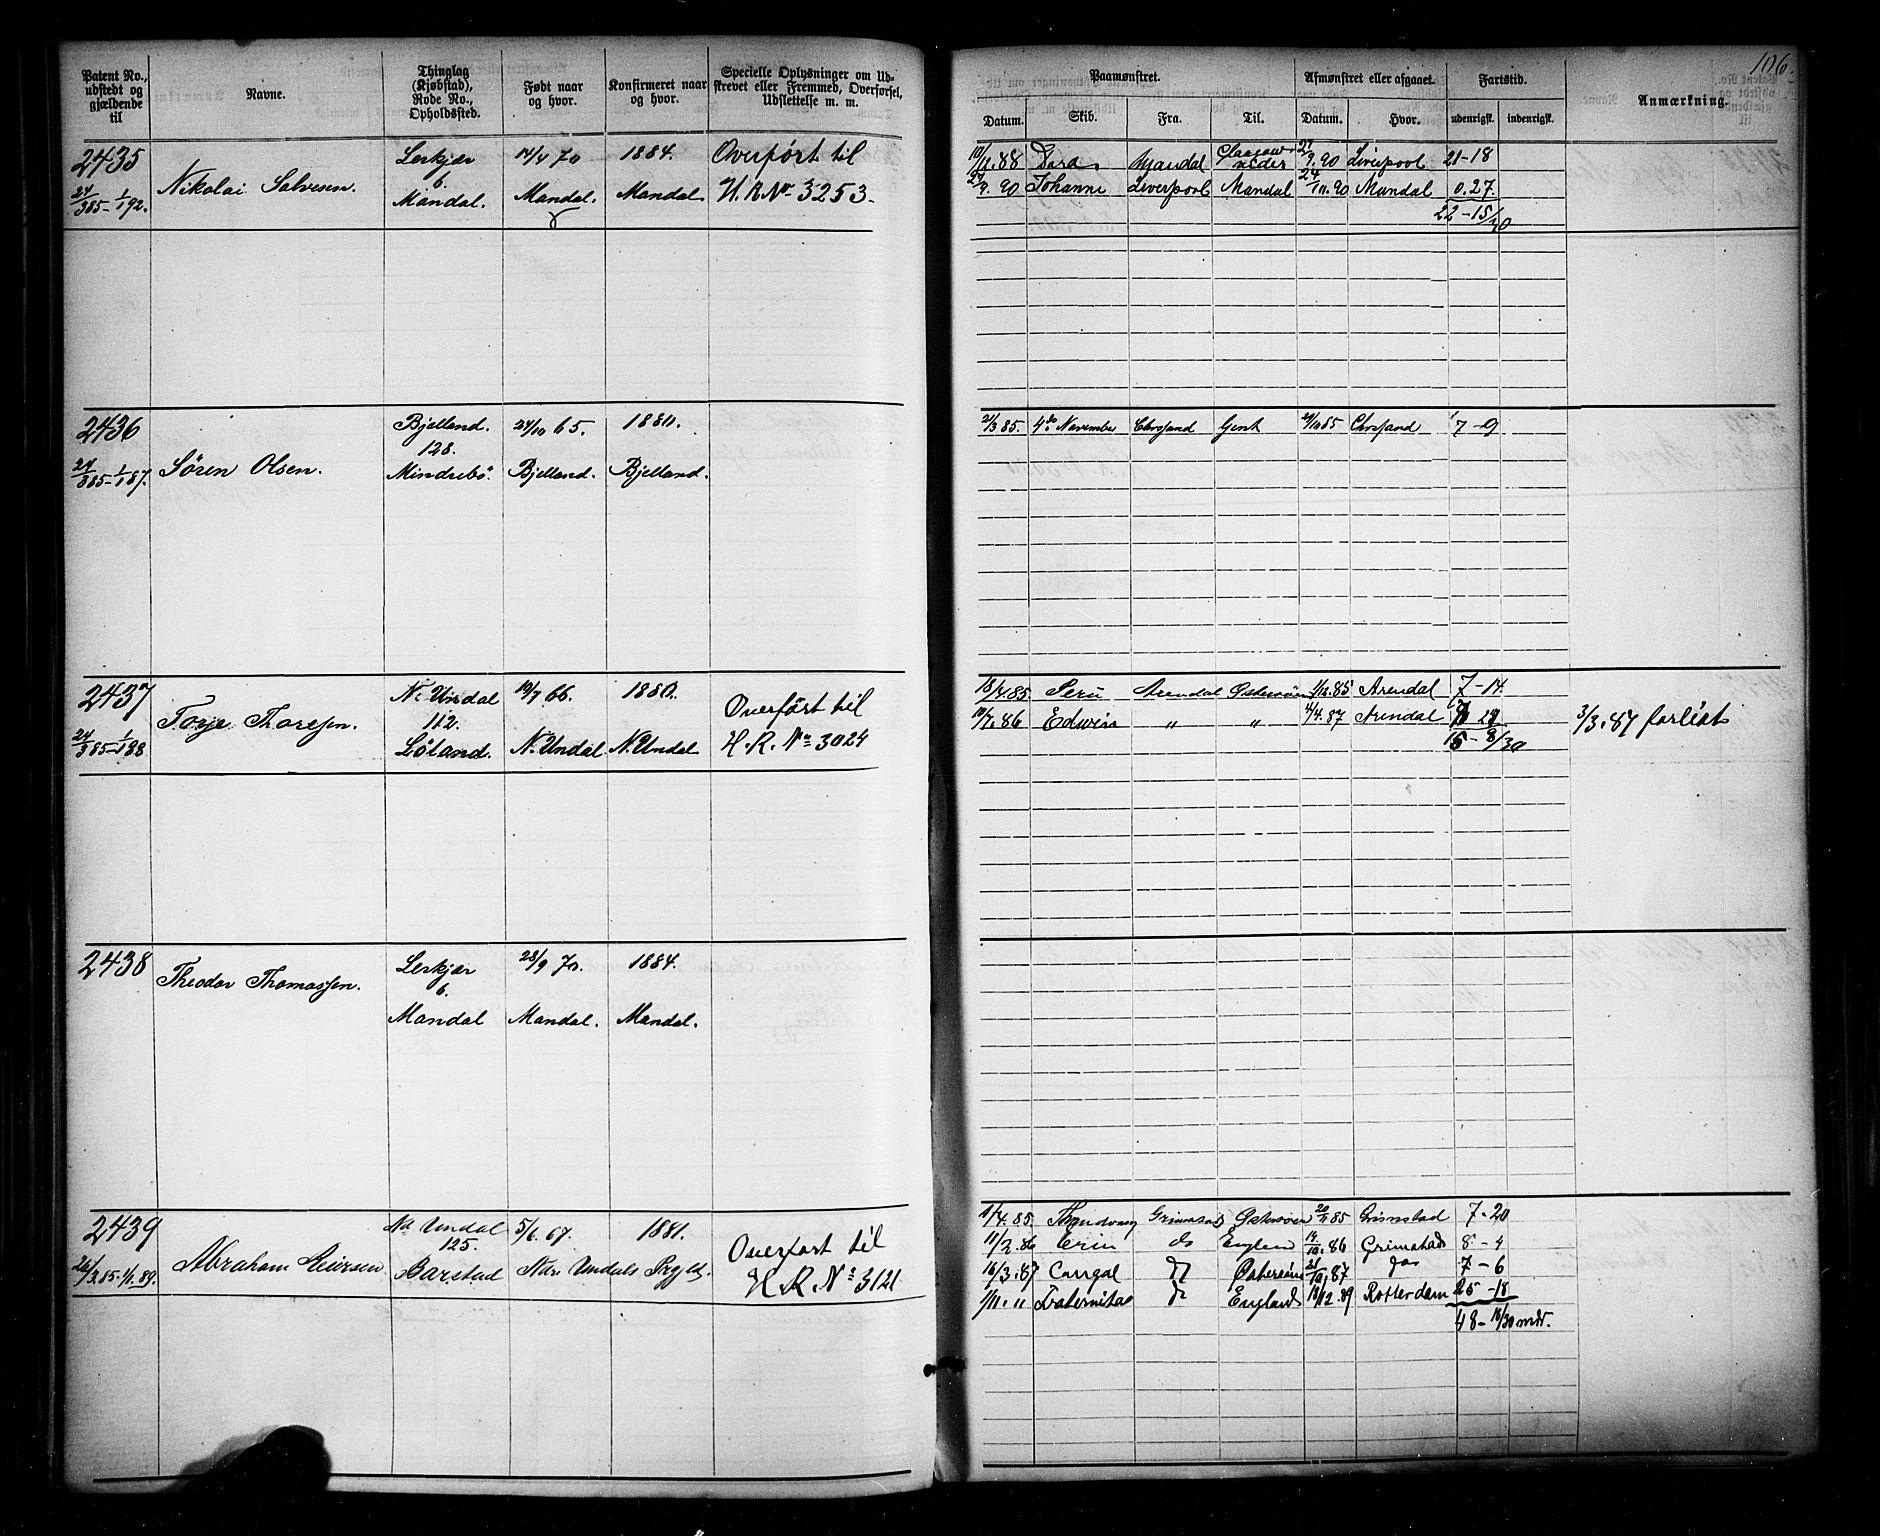 106.
Patent No., udstedt og gjældende til
Navne.
Thinglag (Kjøbstad), Rode No., Opholdssted.
Født naar og hvor.
Konfirmeret naar og hvor.
Specielle Oplysninger om Udskrevet eller Fremmed, Overførsel, Udslettelse m. m.
Paamønstret.
Afmønstret eller afgaaet.
Fartstid.
Anmærkning.
Datum. Skib. Fra. Til. Datum. Hvor. udenrigsk. indenrigsk.
2435 Lerkjær 14/4 70 1884. Overført til
Nikolai Salvesen. 6.
24/3 85 - 1/1 92. Mandal. Mandal. Mandal. H. R. No. 3253.
10/12.88 Dora Mandal 9.90 Liverpool 21-18
27/9.90 Johanne Liverpool Mandal 24/10.90 Mandal 0.27.
22-15/30
2436 Bjelland. 24/10 65. 1880.
Søren Olsen. 128.
24/3 85 - 1/1 87. Mindrebö. Bjelland. Bjelland.
21/3 85. 4de November Chrsand Gent 29/10 85 Chrsand 7-9
2437 N. Undal 19/7 66. 1880. Overført til
Torje Thoresen. 112.
24/3 85 - 1/1 88 Löland. N. Undal N. Undal H. R. No 3024
18/4.85. Peru Arendal Østersøen 1/12.85 Arendal 7-14.
10/7.86 Edwin " " 4/4.87 Arendal 3/3.87 forlist
15-8/30
2438 Lerkjær 28/9 70. 1884.
Theodor Thomassen. 6.
Mandal Mandal. Mandal.
2439 Nd Undal 5/6. 67. 1881. Overført til
Abraham 125.
26/3.85. 1/1.89. Barstad Ndr Undals Prgld. H. R. No 3121
11/4.85. Grimstad Østersøen 20/11 85 Grimstad 7-20
11/2.86 Erin do England 14/10.86 Grimstad 8-4
16/3.87 do Østersøen 21/10.87 do 7-6
1/11. " Fraternitas do England 18/12.89 Rotterdam 25-18
48-18/30 mdr.